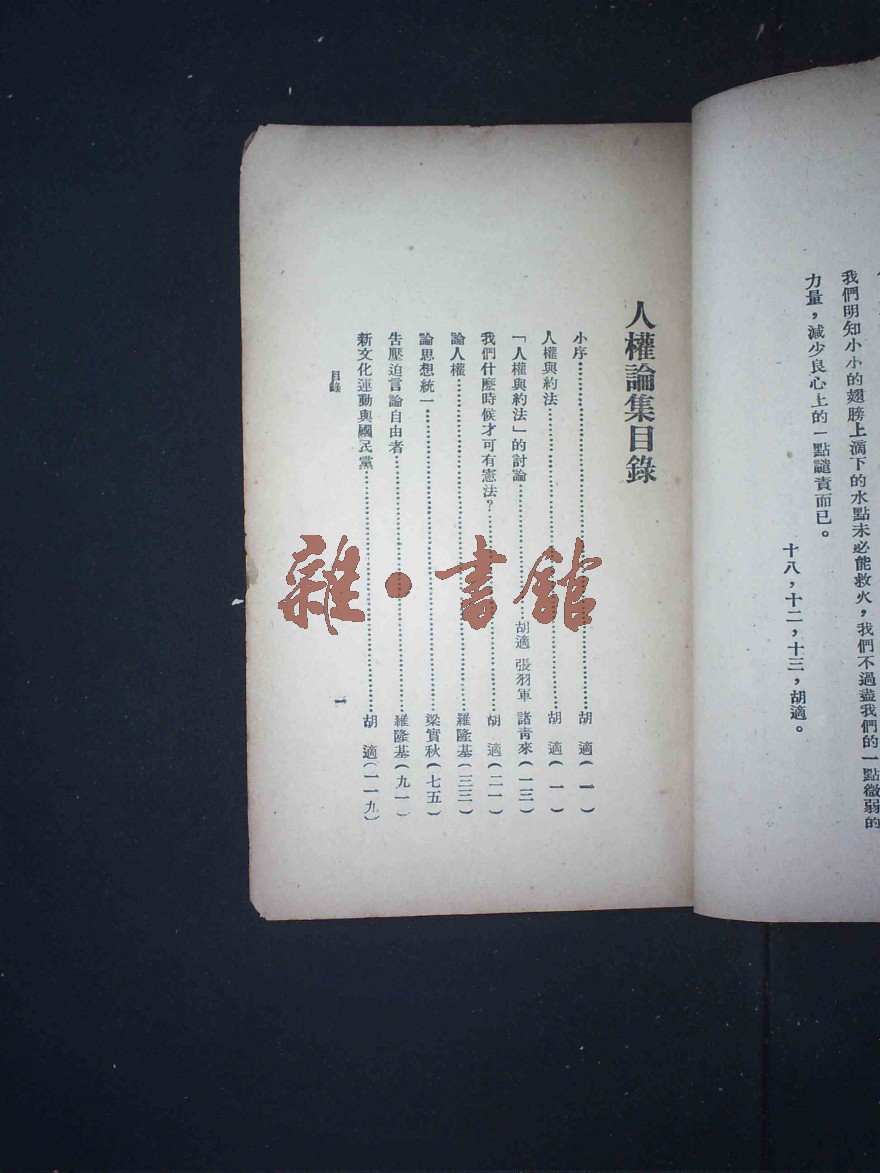 我們明知小小的翅膀上滴下的水點未必能救火，我們不過盡我們的一點微弱的
力量，減少良心上的一點譴責而已。
十八，十二，十三，胡適。
人權論集目錄
小序……胡　適（一）
人權與約法……胡　適（一）
「人權與約法」的討論……胡適　張羽軍　諸青來（一三）
我們什麼時候才可有憲法？……胡　適（二一）
論人權……羅隆基（三三）
論思想統一……梁實秋（七五）
告壓迫言論自由者……羅隆基（九一）
新文化運動與國民黨……胡　適（一一九）
目錄
一
雜·書館